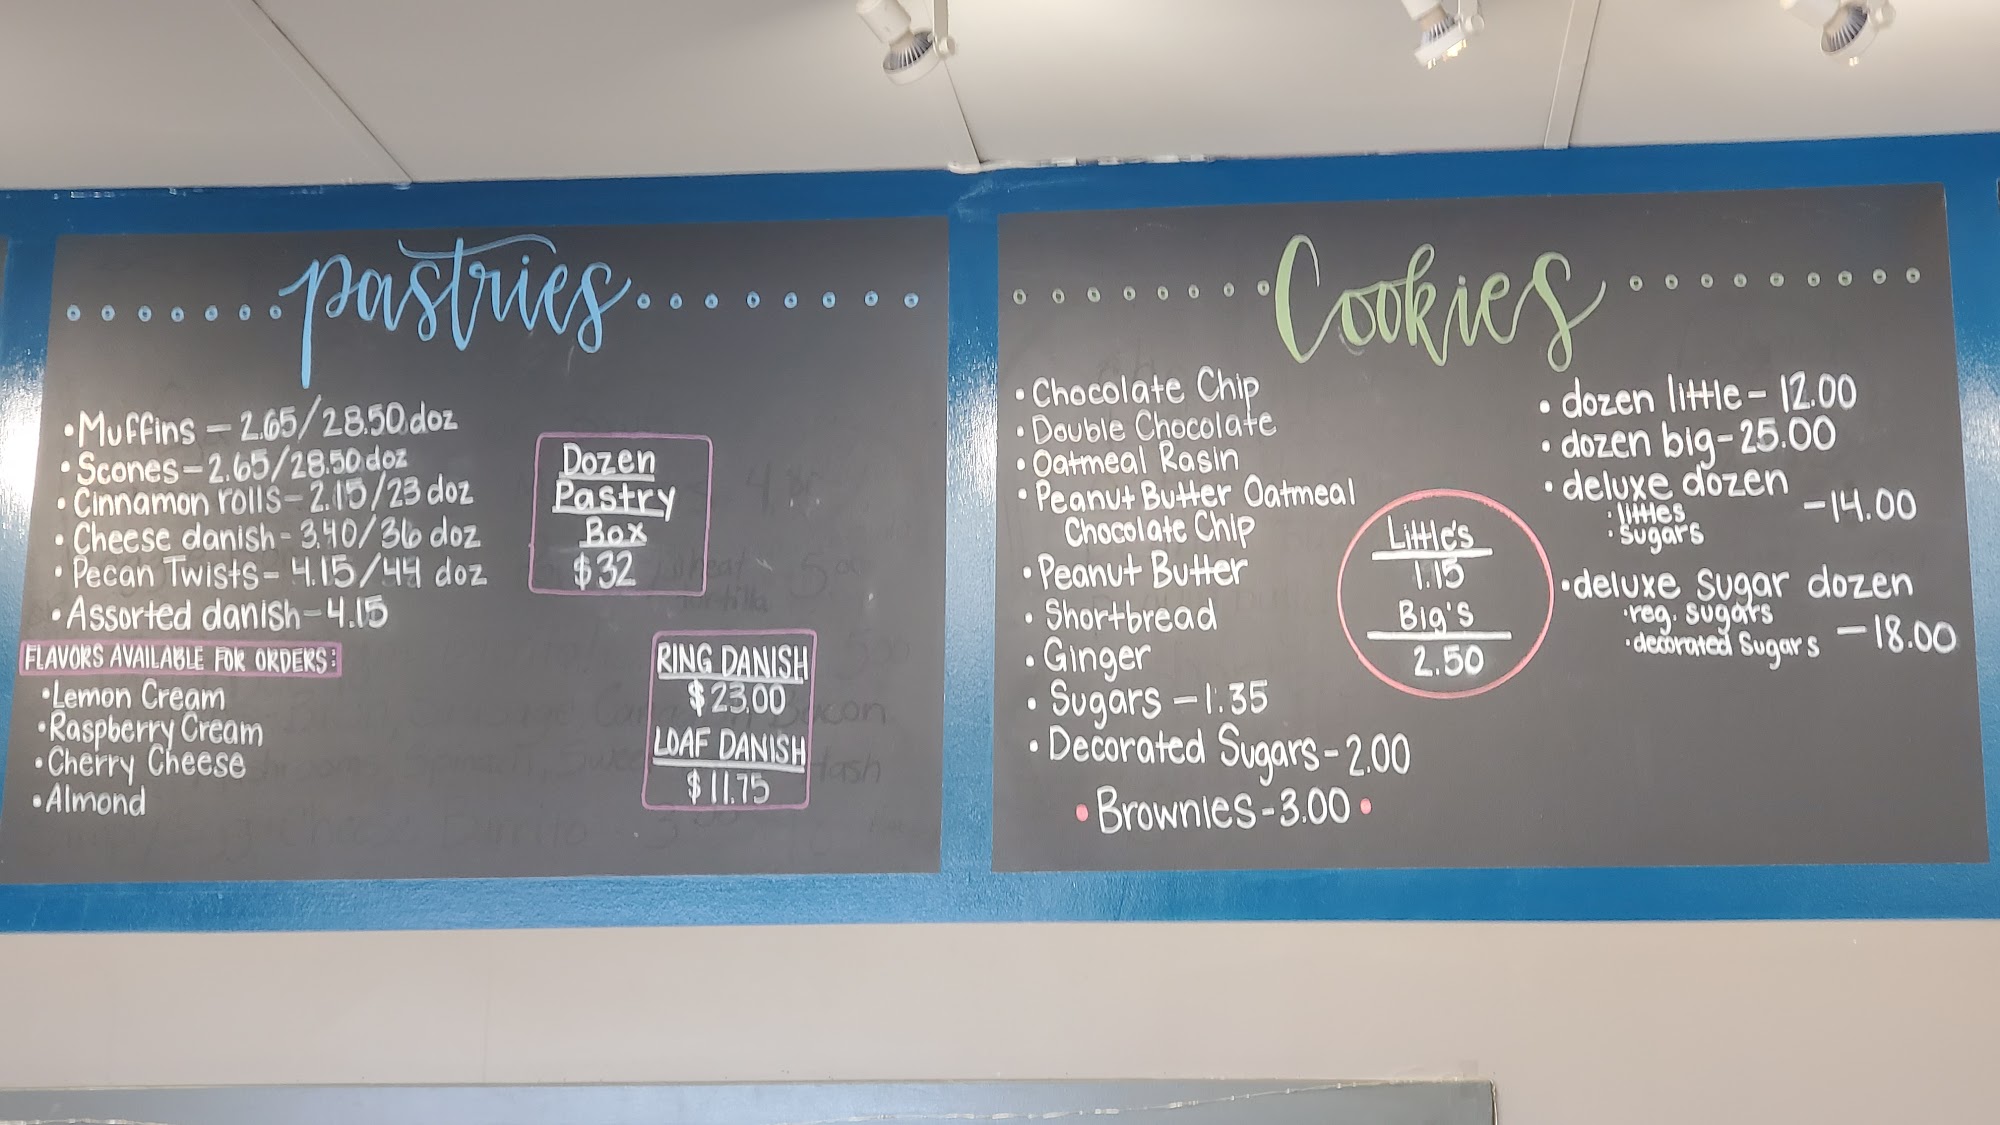 pastries
• Muffins - 2.65/28.50 doz
• Scones - 2.65/28.50 doz
• Cinnamon rolls - 2.15/23 doz
• Cheese danish - 3.40/36 doz
• Pecan Twists - 4.15/44 doz
• Assorted danish - 4.15
FLAVORS AVAILABLE FOR ORDERS:
• Lemon Cream
• Raspberry Cream
• Cherry Cheese
• Almond
Dozen
Pastry
Box
$32
RING DANISH
$23.00
LOAF DANISH
$11.75
Cookies
• Chocolate Chip
• Double Chocolate
• Oatmeal Rasin
• Peanut Butter Oatmeal
Chocolate Chip
• Peanut Butter
• Shortbread
• Ginger
• Sugars - 1.35
• Decorated Sugars - 2.00
• Brownies - 3.00 •
Little's
1.15
Big's
2.50
• dozen little - 12.00
• dozen big - 25.00
• deluxe dozen
• littles
• sugars
- 14.00
• deluxe sugar dozen
• reg. sugars
• decorated sugars
- 18.00